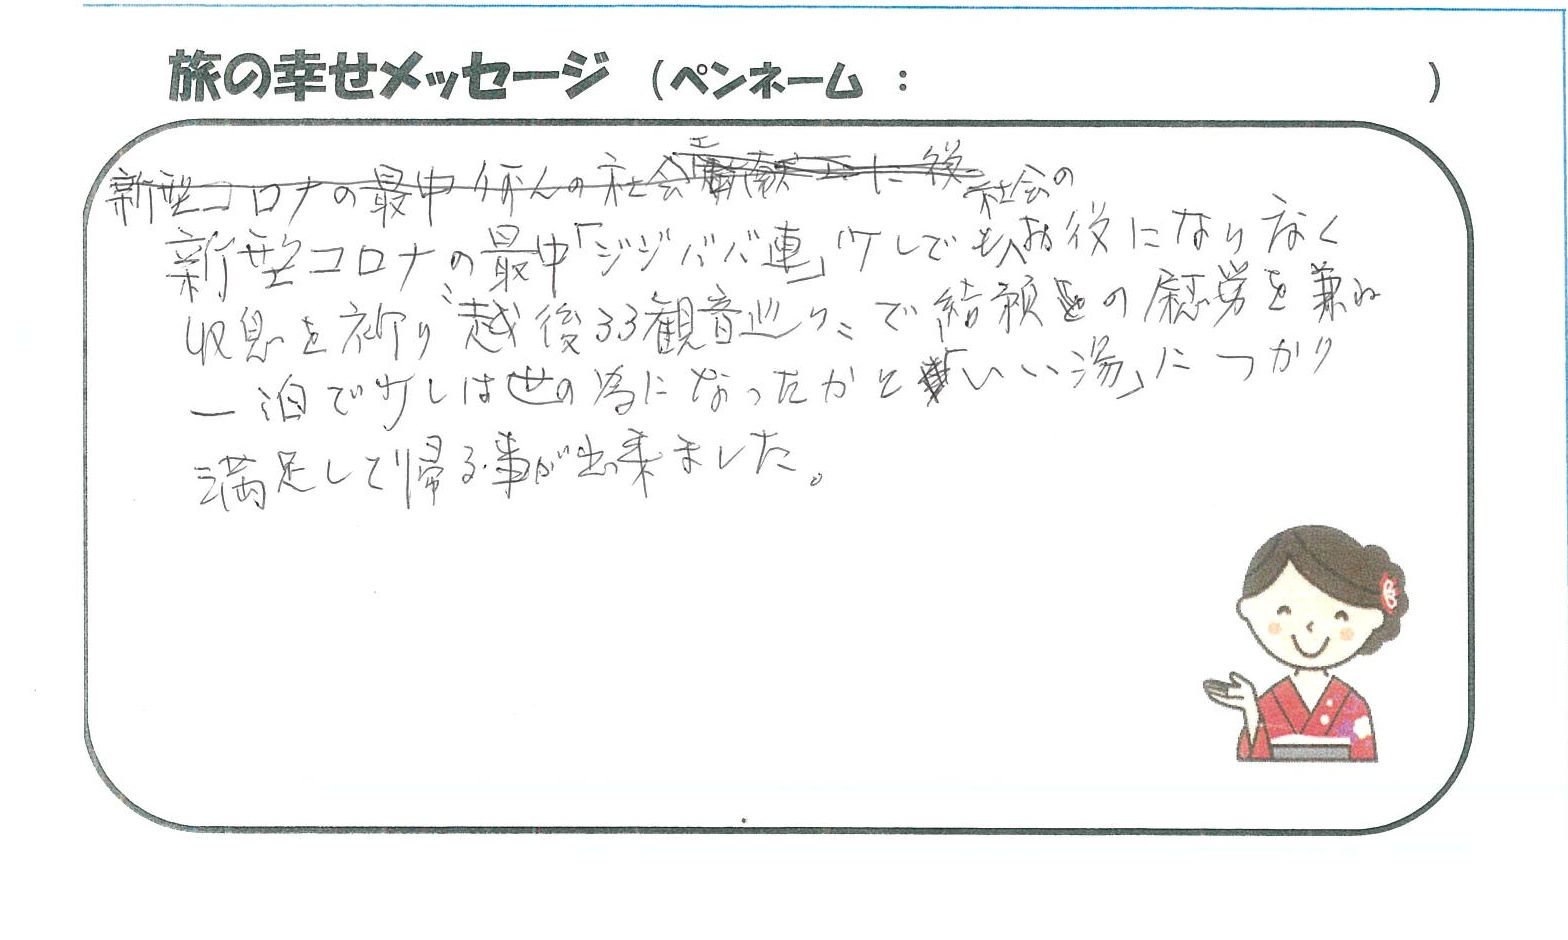 旅の幸せメッセージ (ペンネーム : )
新型コロナの最中 の社会 に役
社会の
新型コロナの最中「ジジババ連」少しでもお役になりなく
収息を祈り“越後33観音巡り”で結願の慰労を兼ね
一泊で少しは世の為になったかと「いい湯」につかり
満足して帰る事が出来ました。